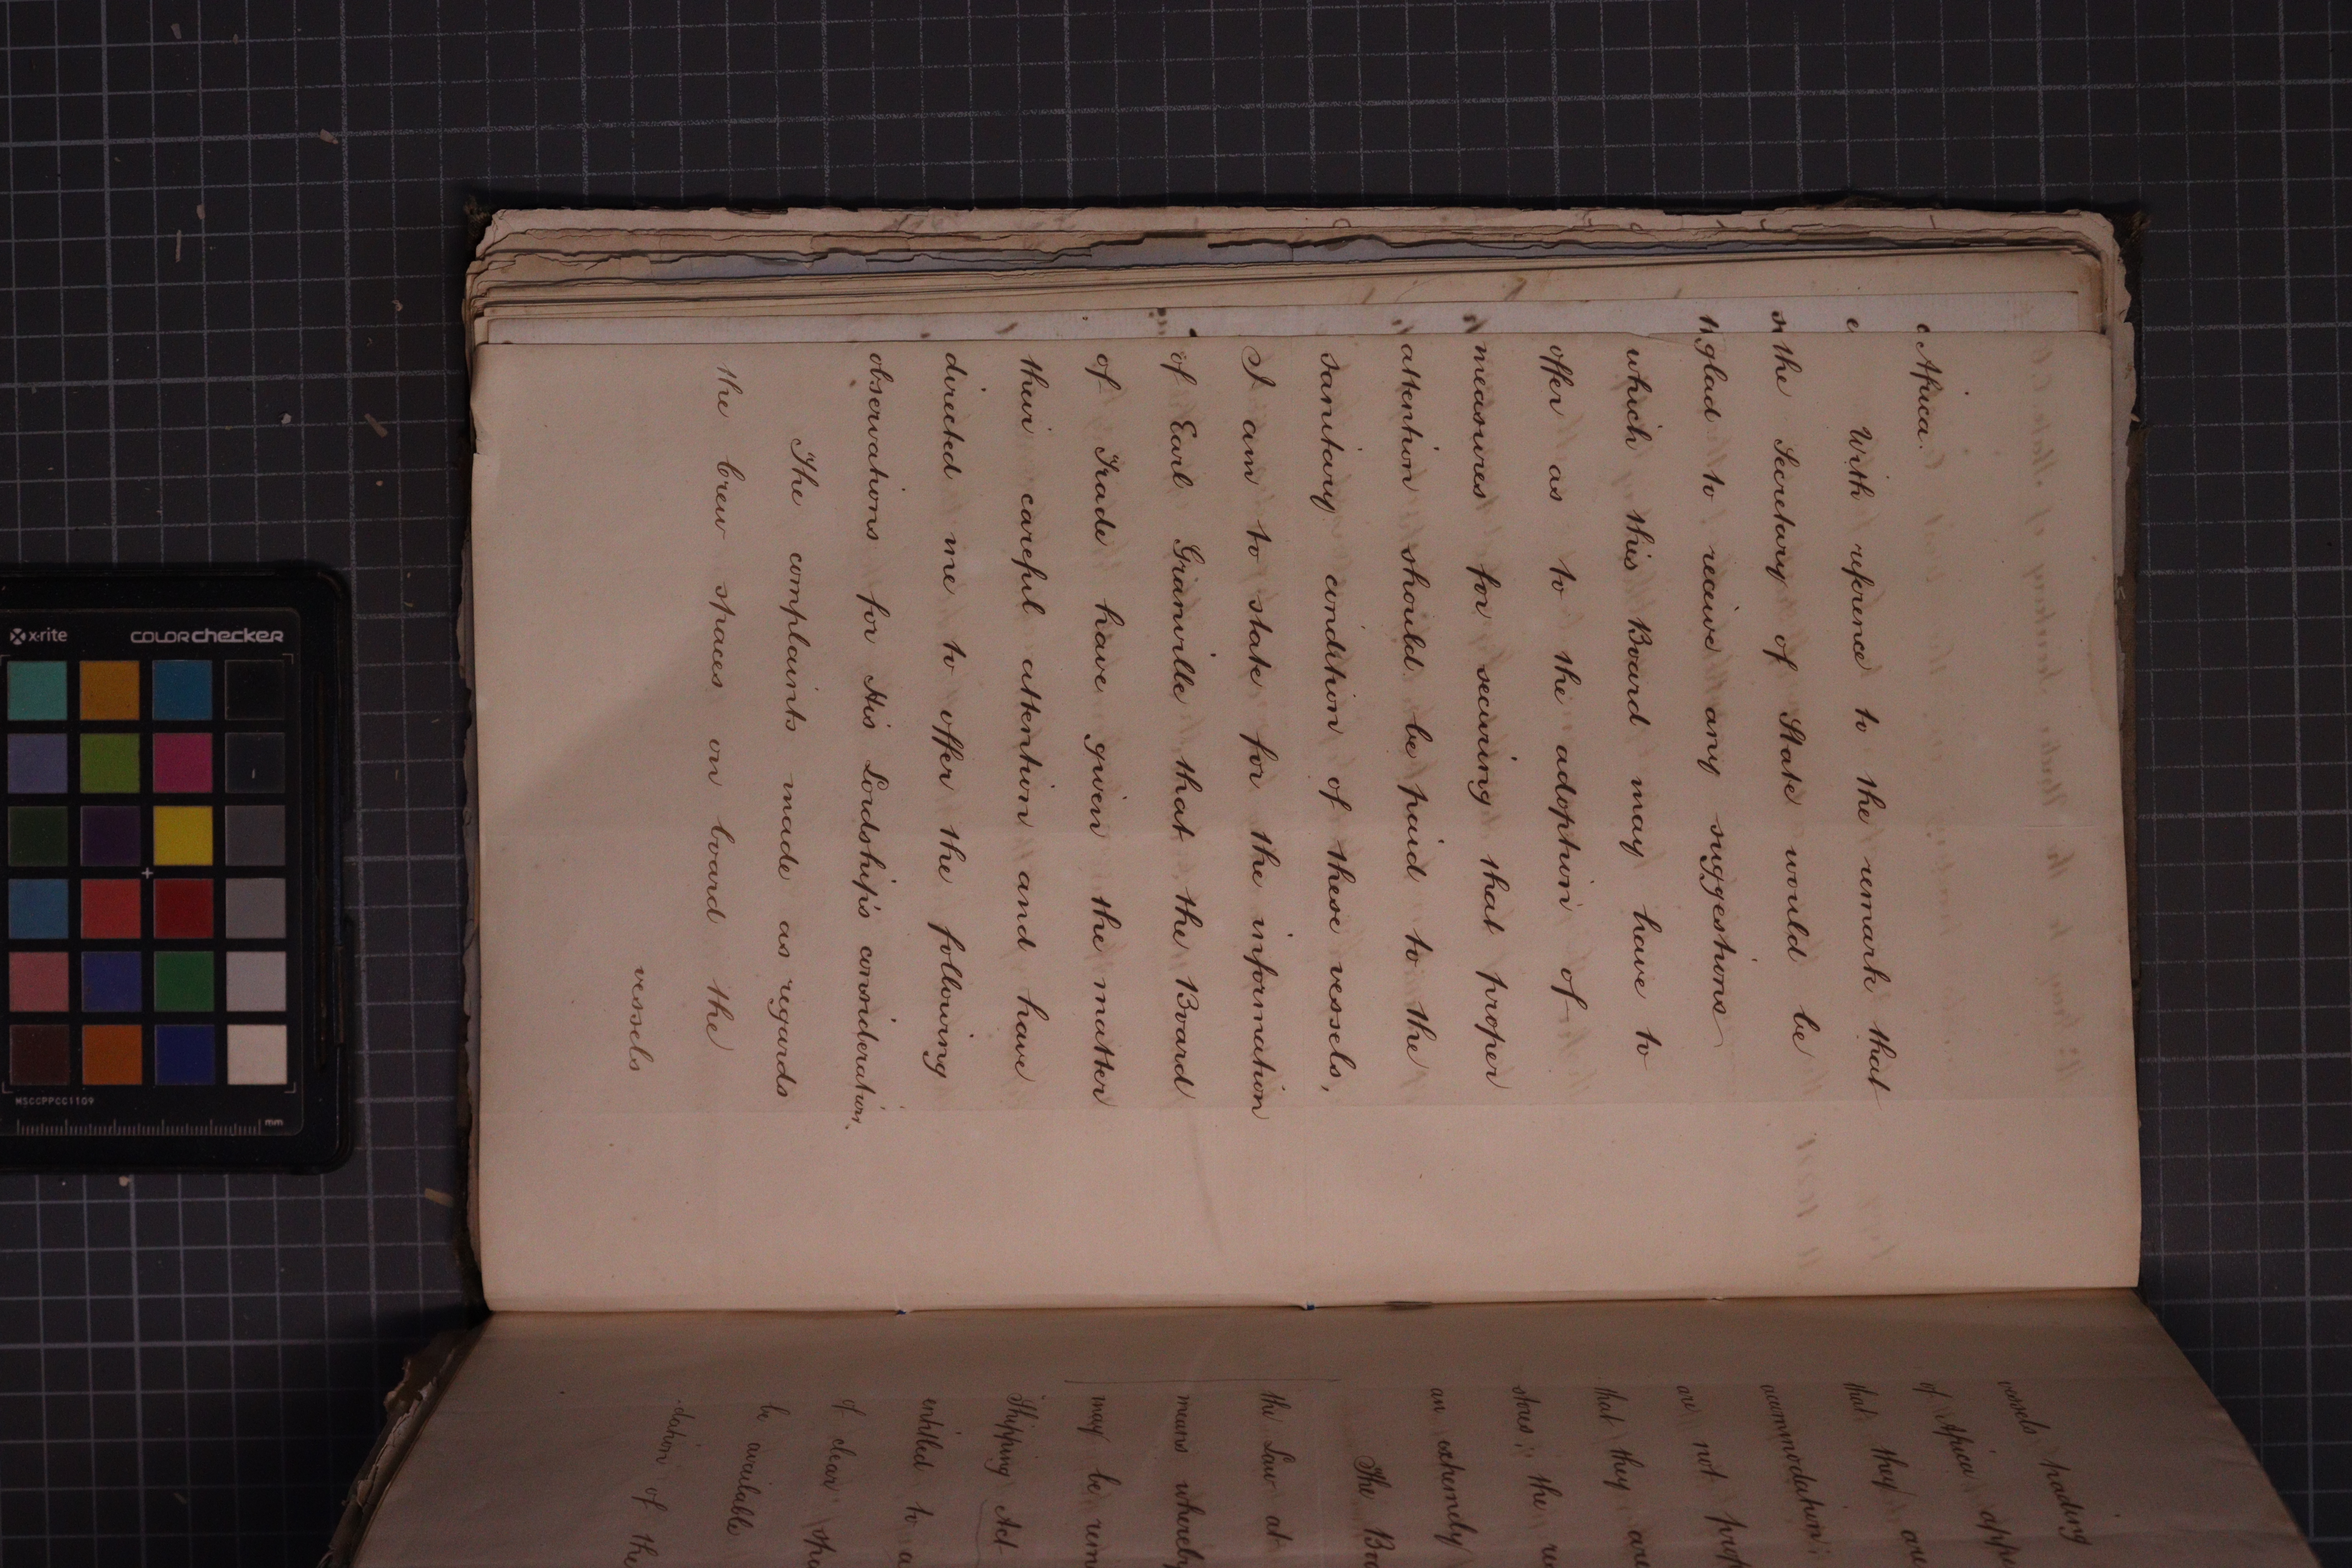 Africa.
With reference to the remark that
the Secretary of State would be
glad to receive any suggestions
which this Board may have to
offer as to the adoption of
measures for securing that proper
attention should be paid to the
sanitary condition of these vessels,
I am to state for the information
of Earl Granville that the Board
of Trade have given the matter
their careful attention and have
directed me to offer the following
observations for His Lordship's consideration.
The complaints made as regards
the crew spaces on board the
vessels
vessels trading
of Africa
that they are
accommodation;
are not
that they are
stores; the
an extremely
The
the Law at
means whereby
may be
Shipping Act
entitled to a
of clear
be available
dation of the
x-rite colorchecker
MSCCPPCC1109
mm